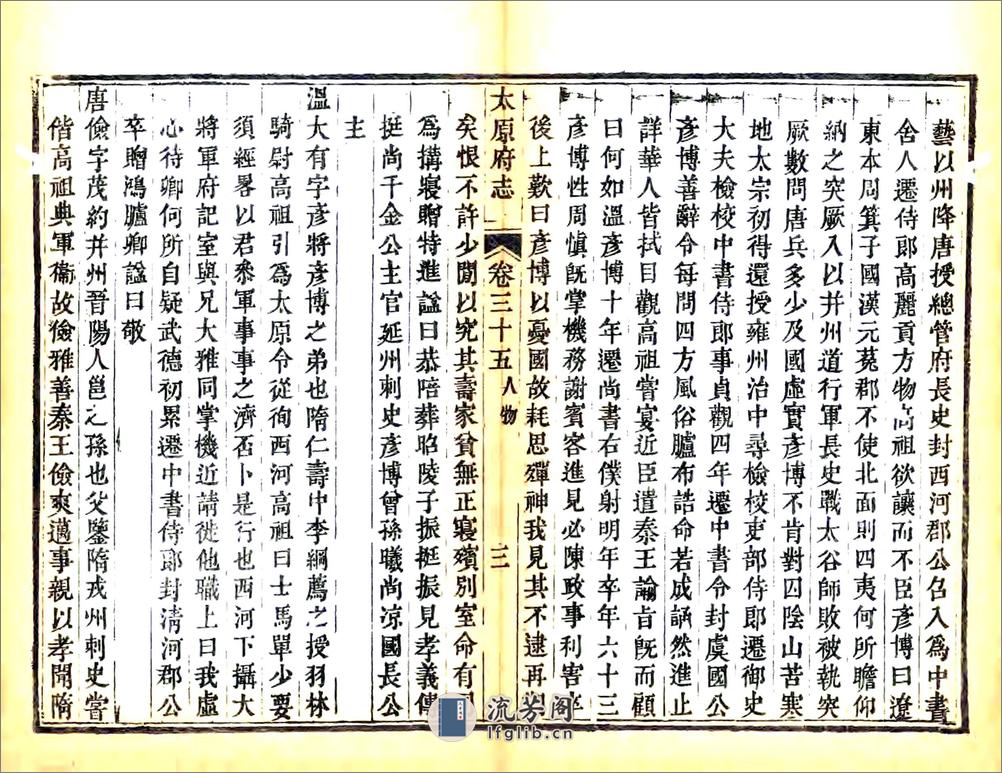 藝以州降唐授總管府長史封西河郡公召入爲中書
舍人遷侍郎高麗貢方物高祖欲讓而不臣彥博曰遼
東本周箕子國漢元菟郡不使北面則四夷何所瞻仰
納之突厥入以并州道行軍長史戰太谷師敗被執突
厥數問唐兵多少及國虛實彥博不肯對囚陰山苦寒
地太宗初得還授雍州治中尋檢校吏部侍郎遷御史
大夫檢校中書侍郎事貞觀四年遷中書令封虞國公
彥博善辭令每問四方風俗臚布誥命若成誦然進止
詳華人皆拭目觀高祖嘗宴近臣遣秦王諭旨既而顧
曰何如溫彥博十年遷尚書右僕射明年卒年六十三
彥博性周愼旣掌機務謝賓客進見必陳政事利害卒
後上歎曰彥博以憂國故耗思殫神我見其不逮再
矣恨不許少閒以究其壽家貧無正寢殯別室命有
爲搆寢贈特進諡曰恭陪葬昭陵子振挺振見孝義傳
挺尚千金公主官延州刺史彥博曾孫曦尚凉國長公
主
溫大有字彥將彥博之弟也隋仁壽中李綱薦之授羽林
騎尉高祖引爲太原令從徇西河高祖曰士馬單少要
須經畧以君叅軍事事之濟否卜是行也西河下攝大
將軍府記室與兄大雅同掌機近請徙他職上曰我虛
心待卿何所自疑武德初累遷中書侍郎封清河郡公
卒贈鴻臚卿諡曰敬
唐儉字茂約并州晉陽人邕之孫也父鑒隋戎州刺史嘗
偕高祖典軍衞故儉雅善秦王儉爽邁事親以孝聞隋
太原府志
卷三十五
人物
三
流芳阁
lfglib.cn